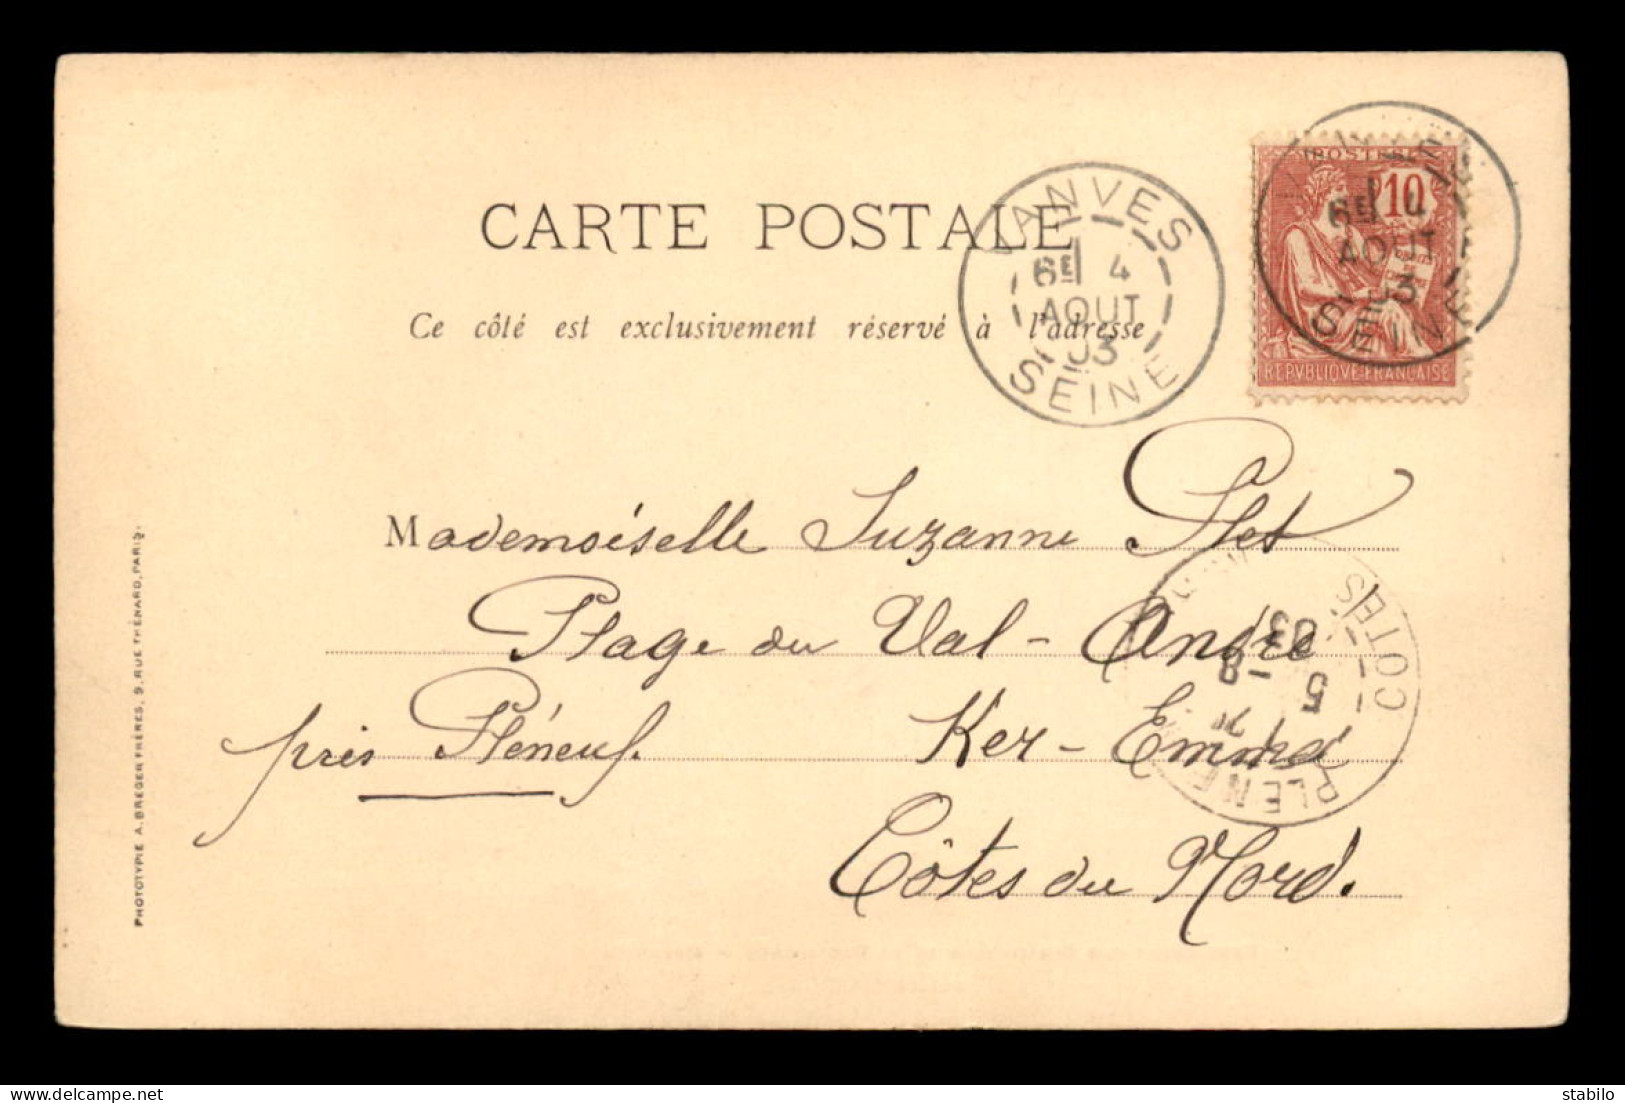 CARTE POSTALE
Ce côté est exclusivement réservé à l'adresse
VANVES
6E 4
AOUT
03
SEINE
POSTES
10
6E 4
AOUT
03
SEINE
REPVBLIQVE FRANÇAISE
Mademoiselle Suzanne Plet
Plage du Val-André
près Pléneuf. Ker-Emma
Côtes du Nord.
COTES
5
8
03
PLENE
PHOTOTYPIE A. BREGER FRÈRES, 9, RUE THÉNARD, PARIS.
stabilo